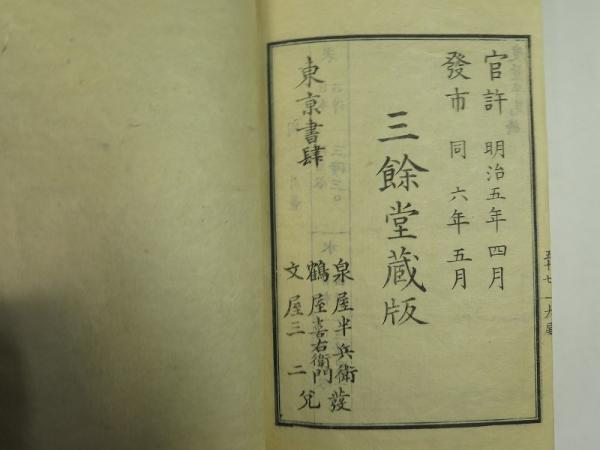 官許 明治五年四月
發市 同 六年五月
三餘堂蔵版
東京書肆
泉屋半兵衛發
鶴屋喜右衛門
文屋三二兌